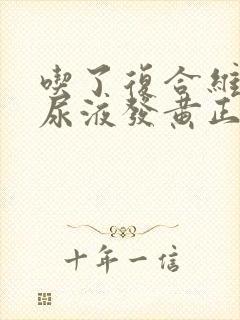 喫了復合維
尿液發黄正
十年一信